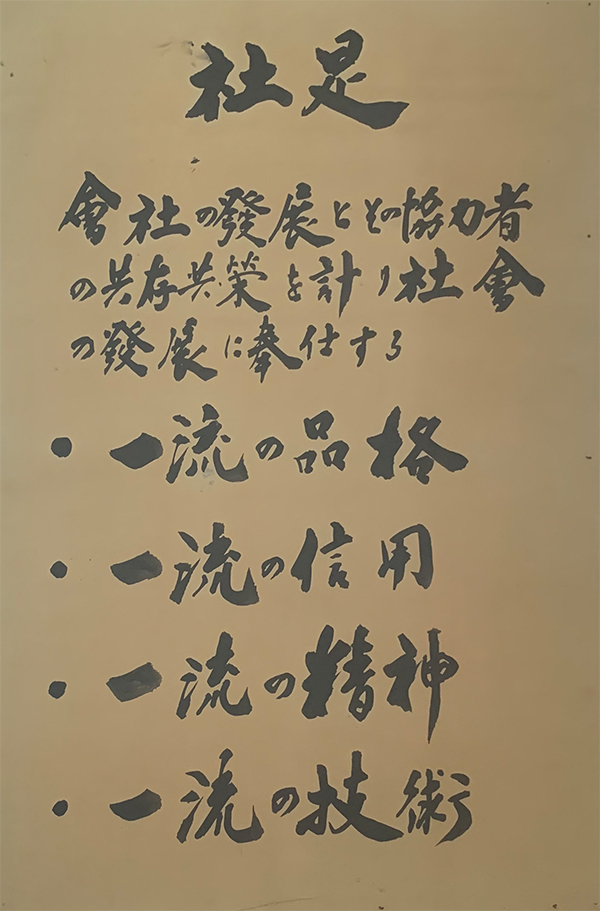 社是
會社の發展とその協力者
の共存共榮を計り社會
の發展に奉仕する
・一流の品格
・一流の信用
・一流の精神
・一流の技術